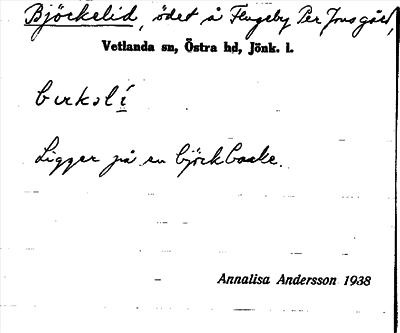 Björkelid, ödet å Flugeby Per Jons gård,
Vetlanda sn, Östra hd, Jönk. l.
Ligger på en björkbacke.
Annalisa Andersson 1938